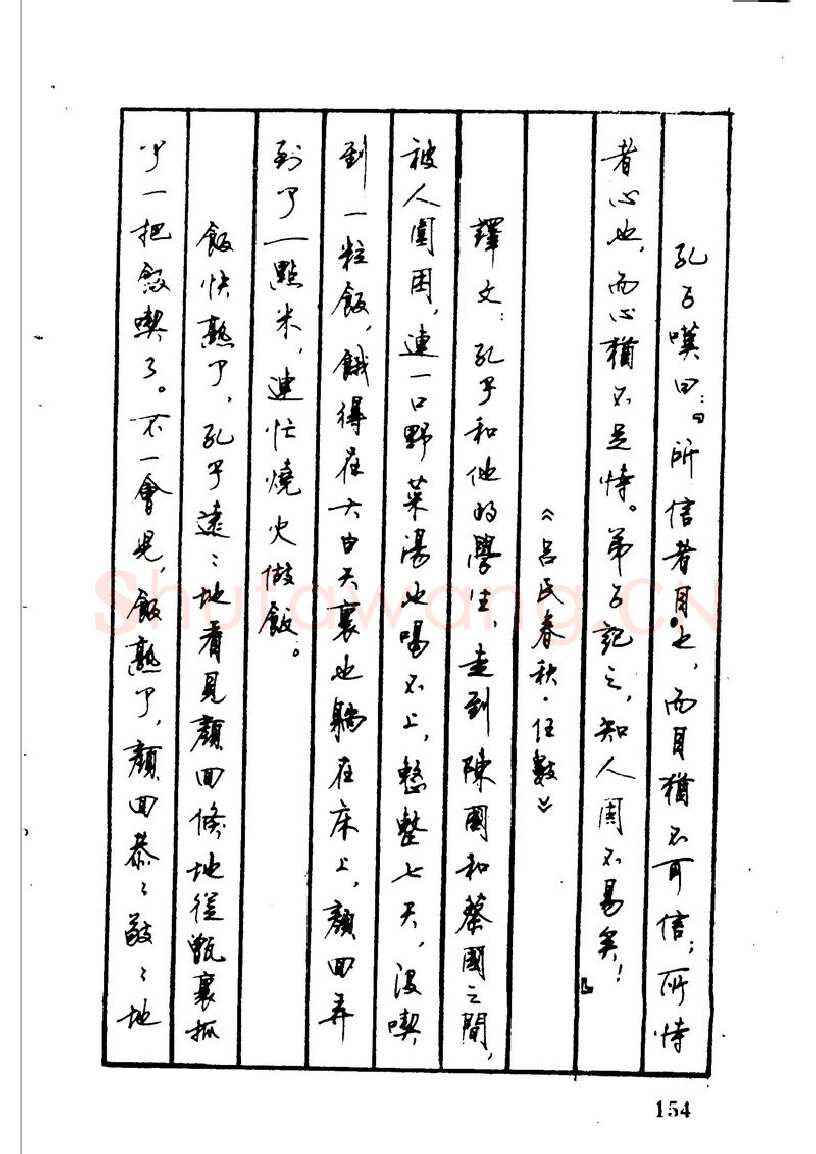 孔子嘆曰：“所信者目也，而目猶不可信；所恃
者心也，而心猶不足恃。弟子記之，知人固不易矣！”
《呂氏春秋·任數》
譯文：孔子和他的學生，走到陳國和蔡國之間，
被人圍困，連一口野菜湯也喝不上，整整七天，沒喫
到一粒飯，餓得在大白天裏也躺在床上，顏回弄
到了一點米，連忙燒火做飯。
飯快熟了，孔子遠々地看見顏回倏地從甑裏抓
了一把飯喫了。不一會兒，飯熟了，顏回恭々敬々地
154
ShufaWang.CN